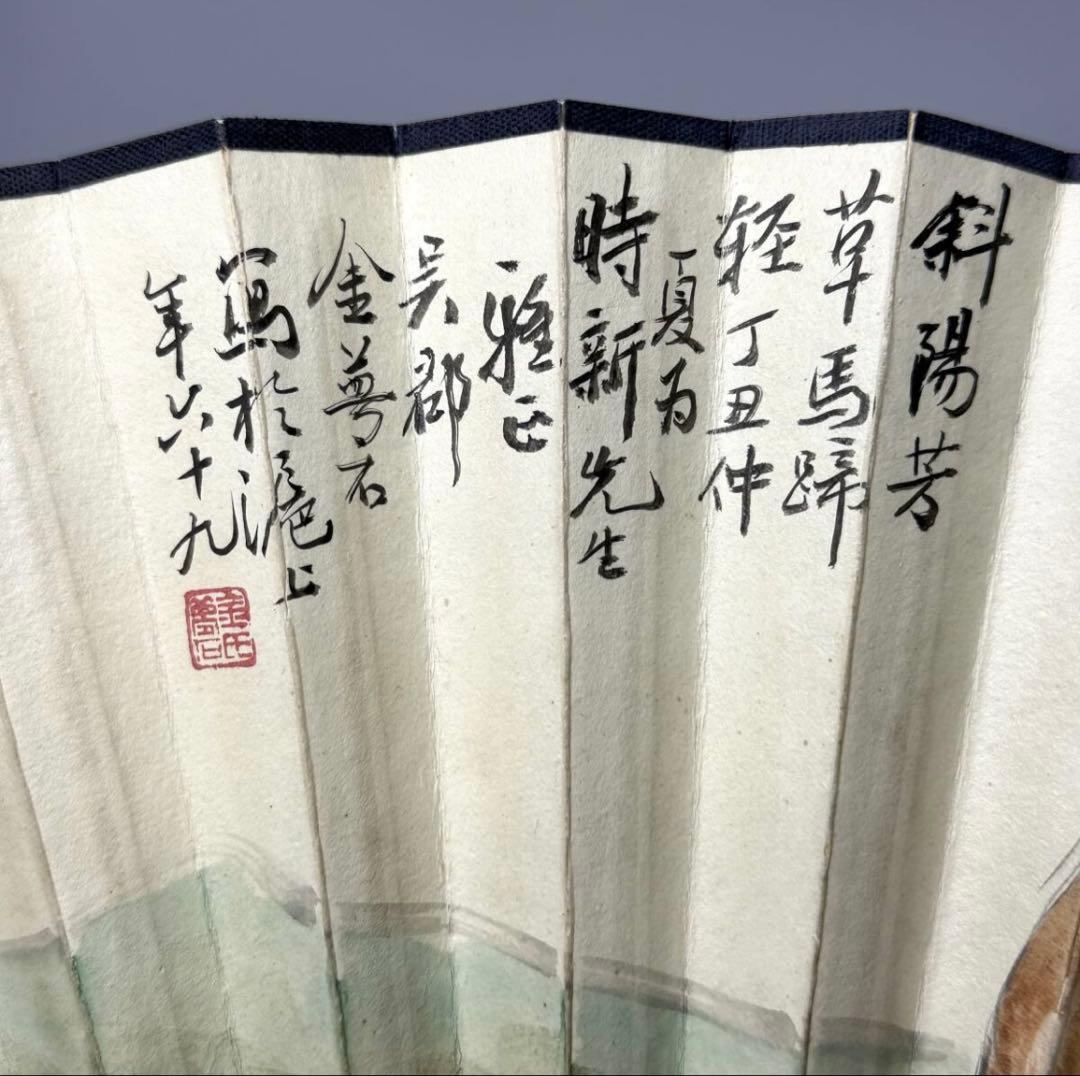 斜陽芳
草馬蹄
軽丁丑仲
夏为
時新先生
雅正
吴郡
金夢石
寫於滬上
年六十九
金氏
夢石